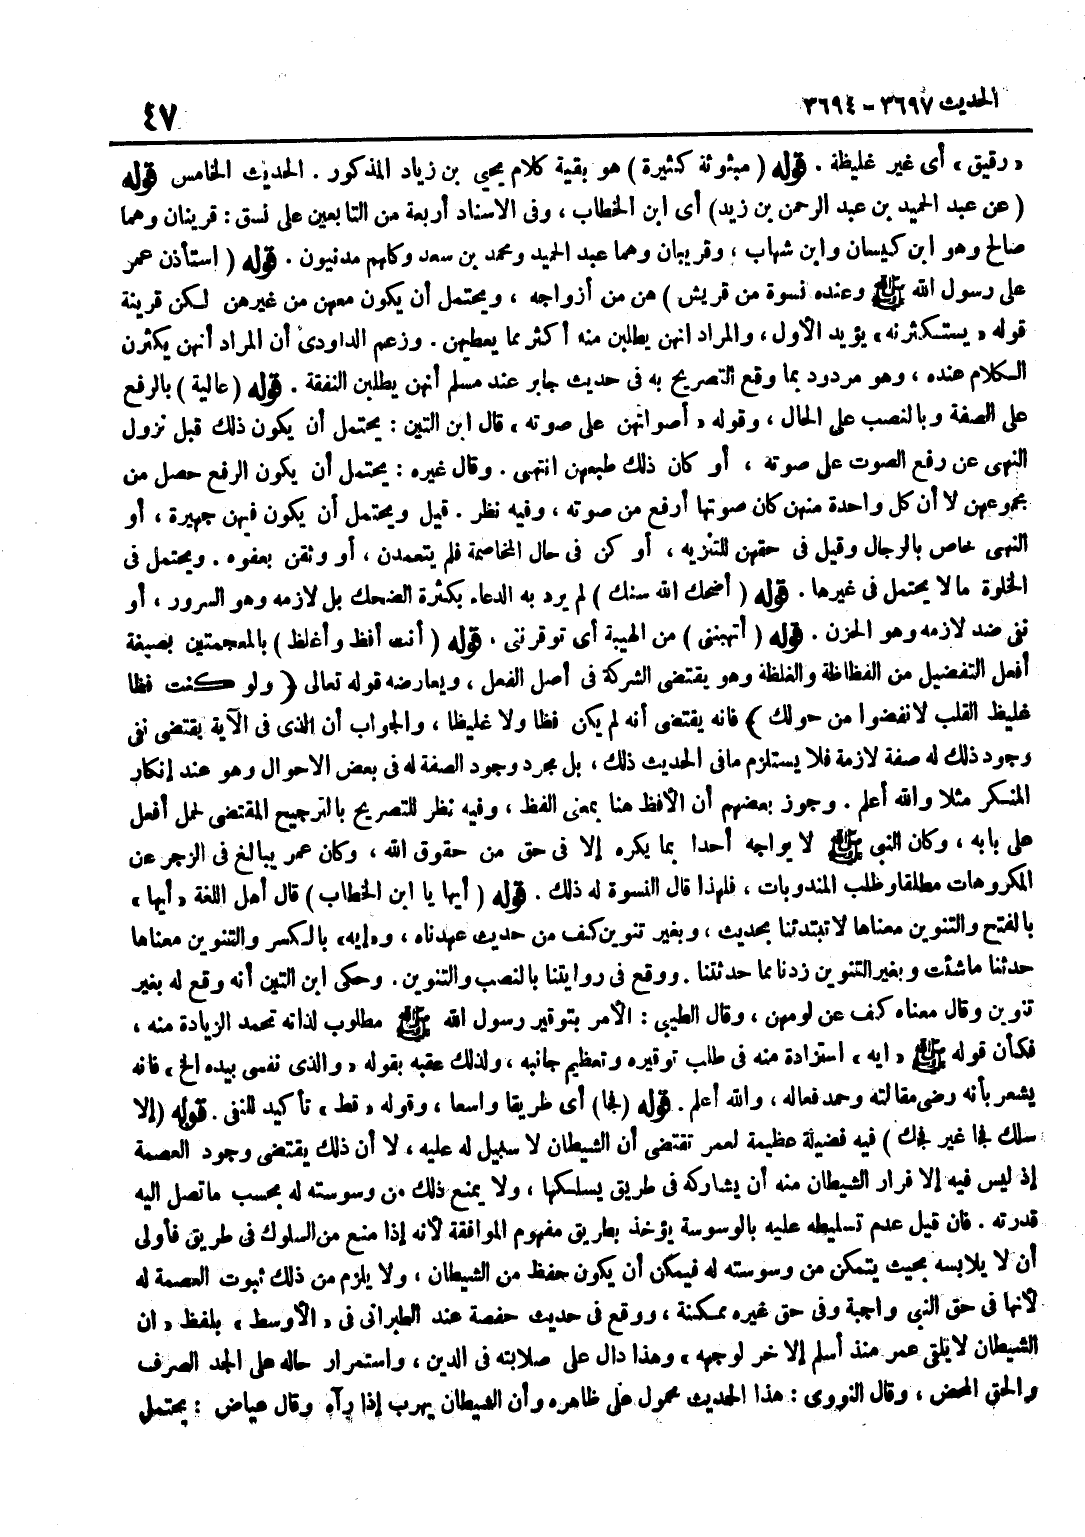 الحديث ٣٦٩٧ - ٣٦٩٤
٤٧
« رقيق » أى غير غليظة . قوله ( مبثوثة كثيرة ) هو بقية كلام يحيى بن زياد المذكور . الحديث الخامس قوله
( عن عبد الحميد بن عبد الرحمن بن زيد) أى ابن الخطاب ، وفى الاسناد أربعة من التابعين على نسق : قرينان وهما
صالح وهو ابن كيسان وابن شهاب ، وقريبان وهما عبد الحميد ومحمد بن سعد وكلهم مدنيون . قوله ( استأذن عمر
على رسول الله ﷺ وعنده نسوة من قريش ) هن من أزواجه ، ويحتمل أن يكون معهن من غيرهن لكن قرينة
قوله « يستكثرنه » يؤيد الأول ، والمراد انهن يطلبن منه أكثر مما يعطيهن . وزعم الداودى أن المراد أنهن يكثرن
الكلام عنده ، وهو مردود بما وقع التصريح به فى حديث جابر عند مسلم أنهن يطلبن النفقة . قوله ( عالية ) بالرفع
على الصفة وبالنصب على الحال ، وقوله « أصواتهن على صوته » قال ابن التين : يحتمل أن يكون ذلك قبل نزول
النهى عن رفع الصوت على صوته ، أو كان ذلك طبعهن انتهى . وقال غيره : يحتمل أن يكون الرفع حصل من
مجموعهن لا أن كل واحدة منهن كان صوتها أرفع من صوته ، وفيه نظر . قيل ويحتمل أن يكون فيهن جهيرة ، أو
النهى خاص بالرجال وقيل فى حقهن للتنزيه ، أو كن فى حال المخاصمة فلم يتعمدن ، أو وثقن بعفوه . ويحتمل فى
الخلوة مالا يحتمل فى غيرها . قوله ( أضحك الله سنك ) لم يرد به الدعاء بكثرة الضحك بل لازمه وهو السرور ، أو
نفى ضد لازمه وهو الحزن . قوله ( أتهبننى ) من الهيبة أى توقرننى . قوله ( أنت أفظ وأغلظ ) بالمعجمتين بصيغة
أفعل التفضيل من الفظاظة والغلظة وهو يقتضى الشركة فى أصل الفعل ، ويعارضه قوله تعالى ﴿ ولو كنت فظا
غليظ القلب لانفضوا من حولك ﴾ فانه يقتضى أنه لم يكن فظا ولا غليظا ، والجواب أن الذى فى الآية يقتضى نفى
وجود ذلك له صفة لازمة فلا يستلزم مافى الحديث ذلك ، بل مجرد وجود الصفة له فى بعض الاحوال وهو عند إنكار
المنكر مثلا والله أعلم . وجوز بعضهم أن الأفظ هنا بمعنى الفظ ، وفيه نظر للتصريح بالترجيح المقتضى لحمل أفعل
على بابه ، وكان النبى ﷺ لا يواجه أحدا بما يكره إلا فى حق من حقوق الله ، وكان عمر يبالغ فى الزجر عن
المكروهات مطلقا وطلب المندوبات ، فلهذا قال النسوة له ذلك . قوله ( أيها يا ابن الخطاب ) قال أهل اللغة « أيها »
بالفتح والتنوين معناها لا تبتدئنا بحديث ، وبغير تنوين كف من حديث عهدناه ، و«إيه» بالكسر والتنوين معناها
حدثنا ماشئت وبغير التنوين زدنا مما حدثتنا . ووقع فى روايتنا بالنصب والتنوين . وحكى ابن التين أنه وقع له بغير
تنوين وقال معناه كف عن لومهن ، وقال الطيبى : الأمر بتوقير رسول الله ﷺ مطلوب لذاته تحمد الزيادة منه ،
فكأن قوله ﷺ « ايه » استزادة منه فى طلب توقيره وتعظيم جانبه ، ولذلك عقبه بقوله « والذى نفسى بيده الخ » فانه
يشعر بأنه رضى مقالته وحمد فعاله ، والله أعلم . قوله (فجا) أى طريقا واسعا ، وقوله « قط » تأكيد للنفى . قوله (إلا
سلك فجا غير فجك ) فيه فضيلة عظيمة لعمر تقتضى أن الشيطان لا سبيل له عليه ، لا أن ذلك يقتضى وجود العصمة
إذ ليس فيه إلا فرار الشيطان منه أن يشاركه فى طريق يسلكها ، ولا يمنع ذلك من وسوسته له بحسب ما تصل اليه
قدرته . فان قيل عدم تسليطه عليه بالوسوسة يؤخذ بطريق مفهوم الموافقة لأنه إذا منع من السلوك فى طريق فأولى
أن لا يلابسه بحيث يتمكن من وسوسته له فيمكن أن يكون حفظ من الشيطان ، ولا يلزم من ذلك ثبوت العصمة له
لأنها فى حق النبى واجبة وفى حق غيره ممكنة ، ووقع فى حديث حفصة عند الطبرانى فى « الأوسط » بلفظ « ان
الشيطان لا يلقى عمر منذ أسلم إلا خر لوجهه » وهذا دال على صلابته فى الدين ، واستمرار حاله على الجد الصرف
والحق المحض ، وقال النووى : هذا الحديث محمول على ظاهره وأن الشيطان يهرب إذا رآه وقال عياض : يحتمل